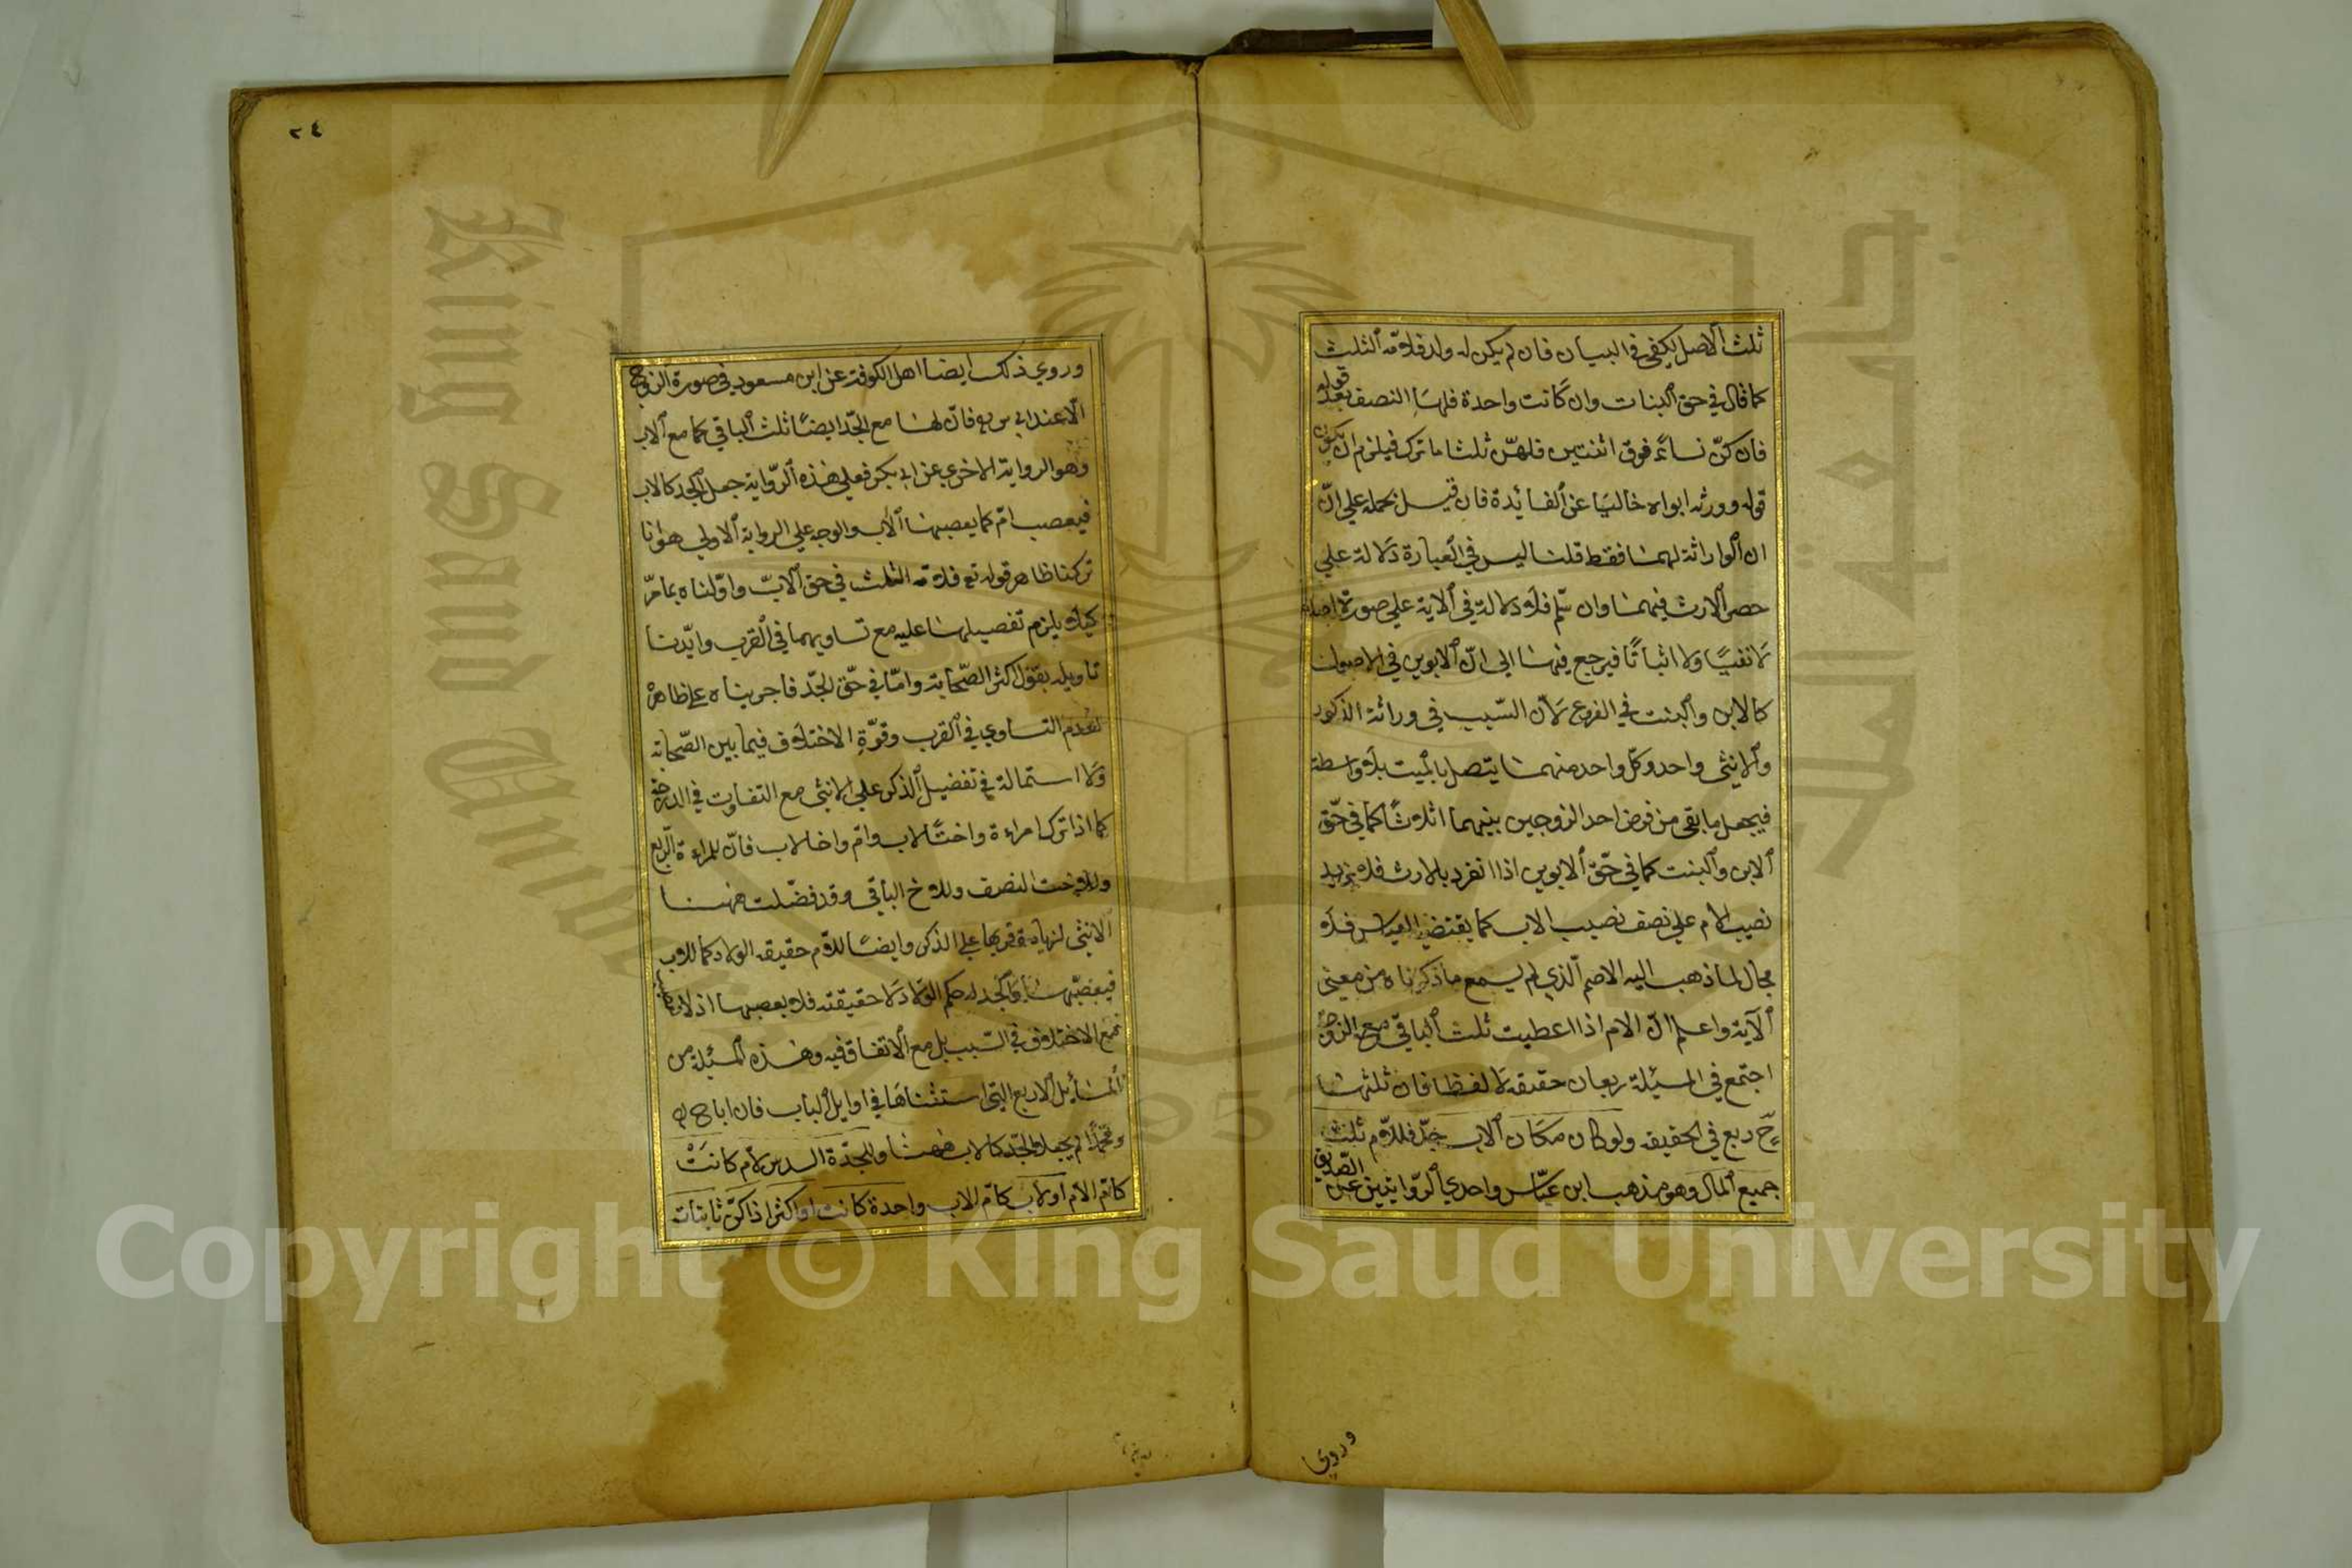 ثلث الاصل يكفي في البيان فان لم يكن له ولد فلامه الثلث
كما قال في حق البنات وان كانت واحدة فلها النصف بعد قوله
فان كنّ نساءً فوق اثنتين فلهنّ ثلثا ما ترك فيلزم ان يكون
قوله وورثه ابواه خاليا عن الفائدة فان قيل نحمله علي انّ
ان الوراثة لهما فقط قلنا ليس في العبارة دلالة علي
حصر الارث فيهما وان سّلم فلا دلالة في الاية علي صورة
لا نفيًا ولا اثباتًا فيرجع فيها الي انّ الابوين في الاصول
كالابن والبنت في الفروع لانّ السّبب في وراثة الذكور
والانثي واحد وكلّ واحد منهما يتصل بالميت بلا واسطة
فيجعل ما بقي من فرض احد الزوجين بينهما اثلاثًا كما في حّق
الابن والبنت كما في حّق الابوين اذا انفرد بالارث فلا يزيد
نصيب الام علي نصف نصيب الاب كما يقتضيه القياس فلا
مجال لما ذهب اليه الاصم الّذي لم يسمع ما ذكرناه من معني
الآية واعلم انّ الام اذا اعطيت ثلث الباقي مع الزوجة
اجتمع في المسئلة ربعان حقيقه لا لفظا فان ثلثها
حّ ربع في الحقيقه ولو كان مكان الاب جدّ فللامّ ثلث
جميع المال وهو مذهب ابن عبّاس واحدي الروّايتين عن الصّديق
وروي
٢٤
وروي ذلك ايضا اهل الكوفة عن ابن مسعود في صورة الزوج
الّا عند ابي يوسف فانّ لها مع الجّد ايضًا ثلث الباقي كما مع الاب
وهو الرواية الاخري عن ابي بكر فعلي هذه الرّواية جعل الجد كالاب
فيعصب امّ كما يعصبها الاب والوجه علي الرواية الاولي هو انا
تركنا ظاهر قوله تع فلامه الثلث في حق الابّ واوّلناه بما مرّ
كيلا يلزم تفصيلها عليه مع تساويهما في القرب وايّدنا
تاويله بقول اكثر الصّحابة وامّا في حّق الجدّ فاجريناه علي ظاهره
لعدم التساوي في القرب وقوّة الاختلاف فيما بين الصّحابة
ولا استمالة في تفضيل الذكر علي الانثي مع التفاوت في الدرجة
كما اذا ترك امراءة واختًا لاب وامّ واخا لاب فانّ للمراءة الربع
وللاخت النصف وللاخ الباقي وقد فضّلت ههنا
الانثي لزيادة قربها علي الذكر وايضًا للامّ حقيقه الولاد كما للاب
فيعصّبها والجد له حكم الولاد لا حقيقته فلا يعصبها اذ لا
مع الاختلاف في السّبب بل مع الاتفاق فيه وهذه المسئلة من
المسايل الاربع التي استثناها في اوايل الباب فان ابا ح
ومحمّدًا لم يجعلا الجّد كالاب ههنا وللجدّة السدس لام كانت
كامّ الام او لاب كامّ الاب واحدة كانت او اكثر اذا كنّ ثابتات